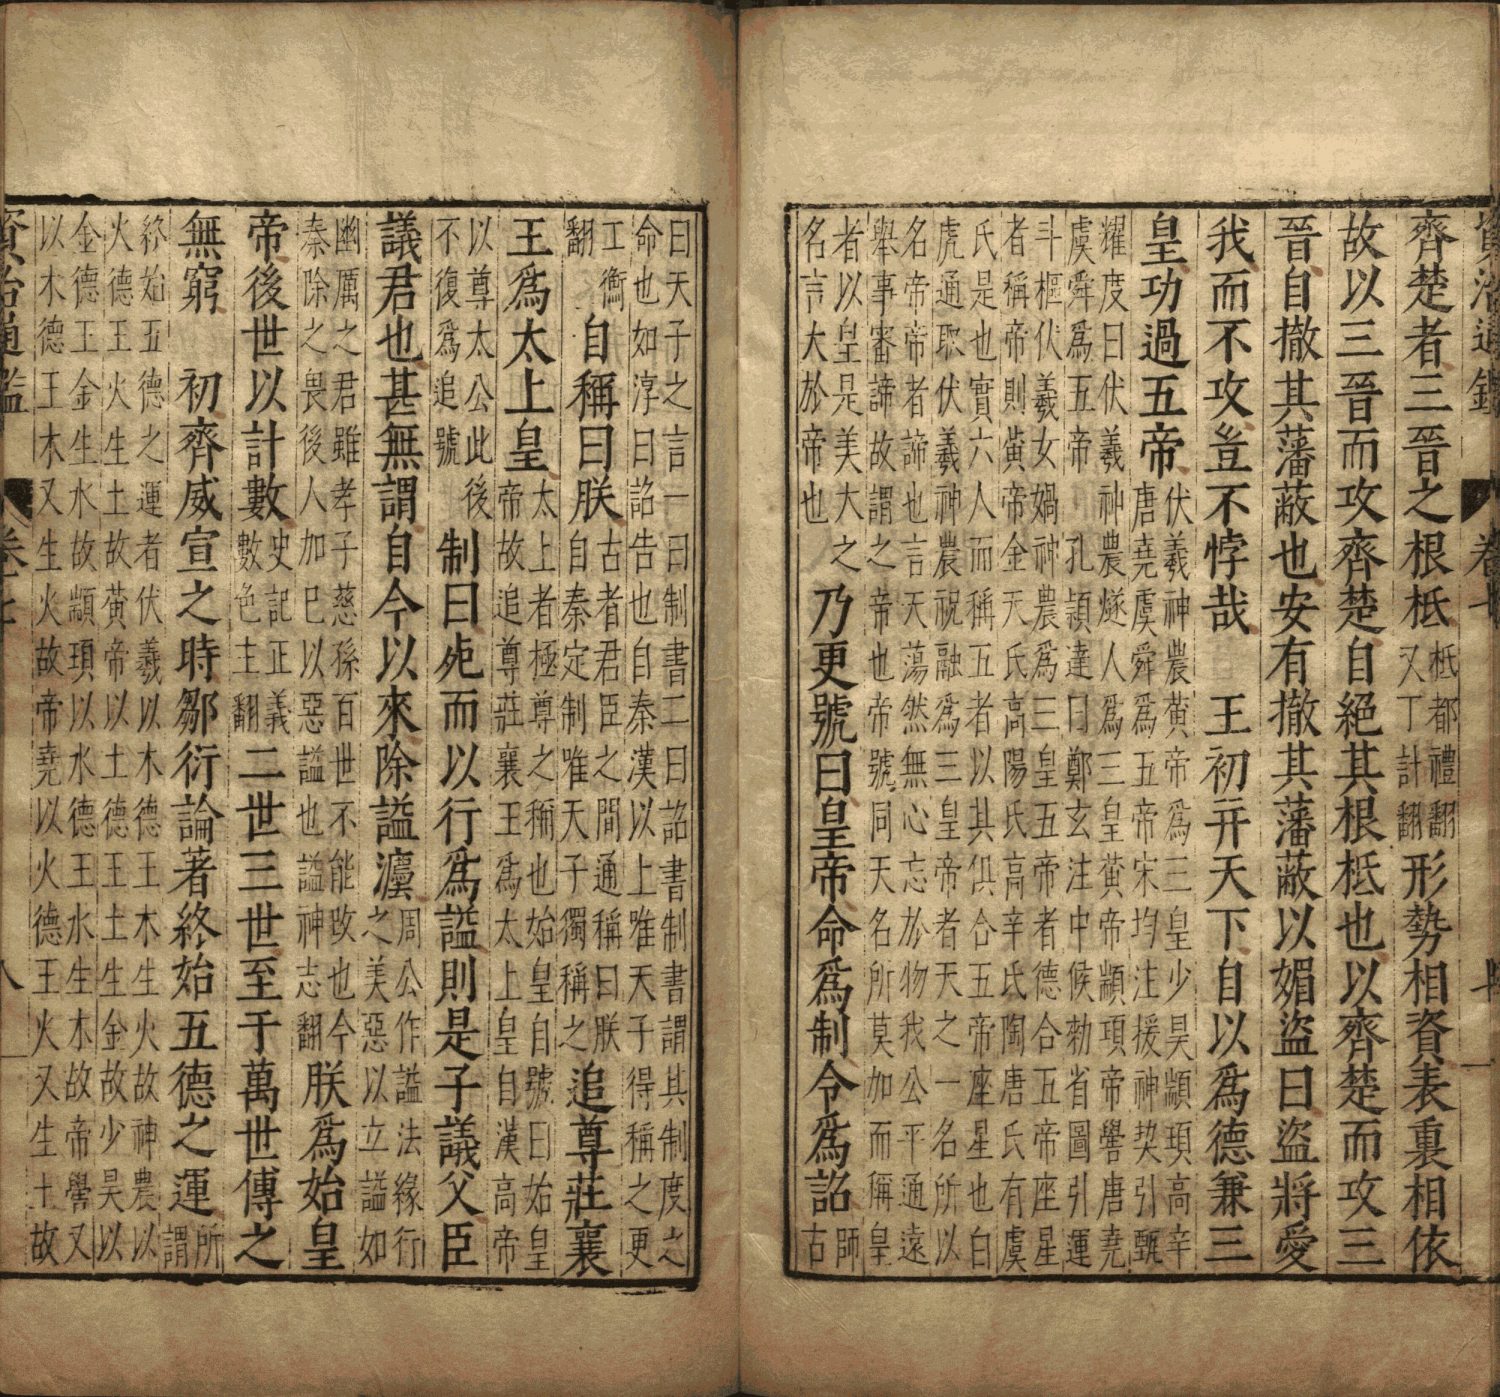 資治通鑑 卷七 七
齊楚者三晉之根柢柢都禮翻又丁計翻形勢相資表裏相依
故以三晉而攻齊楚自絕其根柢也以齊楚而攻三
晉自撤其藩蔽也安有撤其藩蔽以媚盜曰盜將愛
我而不攻豈不悖哉 王初幷天下自以爲德兼三
皇功過五帝伏羲神農黃帝爲三皇少昊顓頊高辛唐堯虞舜爲五帝宋均注援神契引甄
耀度曰伏羲神農燧人爲三皇黃帝顓頊帝嚳唐堯
虞舜爲五帝孔穎達曰鄭玄注中候勑省圖引運
斗樞伏羲女媧神農爲三皇五帝者德合五帝座星
者稱帝則黃帝金天氏高陽氏高辛氏陶唐氏有虞
氏是也實六人而稱五者以其俱合五帝座星也白
虎通取伏羲神農祝融爲三皇帝者天之一名所以
名帝帝者諦也言天蕩然無心忘於物我公平通遠
舉事審諦故謂之帝也帝號同天名所莫加而稱皇
者以皇是美大之名言大於帝也乃更號曰皇帝命爲制令爲詔師古
曰天子之言一曰制書二曰詔書制書謂其制度之
命也如淳曰詔告也自秦漢以上唯天子得稱之更
工衡翻自稱曰朕古者君臣之間通稱曰朕自秦定制唯天子獨稱之追尊莊襄
王爲太上皇太上者極尊之稱也始皇自號曰始皇帝故追尊莊襄王爲太上皇自漢高帝
以尊太公此後不復爲追號制曰死而以行爲謚則是子議父臣
議君也甚無謂自今以來除謚灋周公作謚法緣行之美惡以立謚如
幽厲之君雖孝子慈孫百世不能改也今秦除之畏後人加已以惡謚也謚神志翻朕爲始皇
帝後世以計數史記正義數色主翻二世三世至于萬世傳之
無窮 初齊威宣之時鄒衍論著終始五德之運所謂
終始五德之運者伏羲以木德王木生火故神農以
火德王火生土故黃帝以土德王土生金故少昊以
金德王金生水故顓頊以水德王水生木故帝嚳又
以木德王木又生火故帝堯以火德王火又生土故
資治通鑑 卷七 八